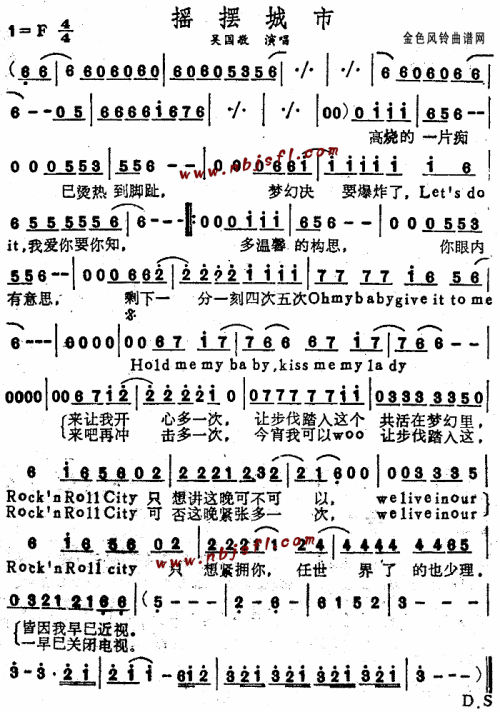 摇摆城市
1=F 4/4
吴国敬 演唱
金色风铃曲谱网
( 6· 6 | 6 60 60 60 | 60 60 5 3 5 6 | ·/· | ·/· | 6 60 60 6 6
6 - - 0 5 | 6 6 6 6 1 6 7 6 | ·/· | ·/· | 0 0 ) 0 1 1 1 | 6 5 6 - -
高烧的 一片痴
www.nbjsfl.com
0 0 0 5 5 3 | 5 5 6 - - | 0 0 0 6 6 1 | 1 1 1 1 1 1 6
已烫热 到脚趾， 梦幻决 要爆炸了，Let's do
6 5 5 5 5 5 6 | 6 - - - :0 0 0 1 1 1 | 6 5 6 - - | 0 0 0 5 5 3
it，我爱你要你知， 多温馨 的构思， 你眼内
5 5 6 - - | 0 0 0 6 6 2 | 2 2 2 2 1 1 1 1 | 7 7 7 7 6 5
有意思， 剩下一 分一刻四次五次Oh my baby give it to me
6 - - - | 0 0 0 0 | 0 0 6 7 1 7 | 7 6 6 7 1 7 | 7 6 6 -
Hold me my baby, kiss me my lady
0 0 0 0 | 0 0 6 7 1 2 | 2 2 2 2 1 0 | 0 7 7 7 7 7 1 1 | 0 3 3 3 3 5 0
来让我开 心多一次， 让步伐踏入这个 共活在梦幻里，
来吧再冲 击多一次， 今宵我可以woo 让步伐踏入这，
6 1 6 5 6 0 2 | 2 2 2 1 2 3 2 | 2 1 6 0 0 | 0 0 3 3 3 5
Rock'n Roll City 只 想讲这晚可不可 以， we live in our
Rock'n Roll City 可 否这晚紧张多一 次， we live in our
6 1 6 5 6 0 2 | 2 2 2 1 2 4 | 4 4 4 4 4 4 6 5
Rock'n Roll city 只 想紧拥你， 任世 界了的也少理，
www.nbjsfl.com
0 3 2 1 2 1 6 6 | ( 5 - - - | 2 - 6 - | 6 1 5 2 | 3 - - -
皆因我早已近视。
一早已关闭电视。
3 - 3 · 2 1 | 2 1 1 - 6 1 2 | 3 2 1 3 2 1 3 2 1 3 2 1 | 3 - - - )
D.S